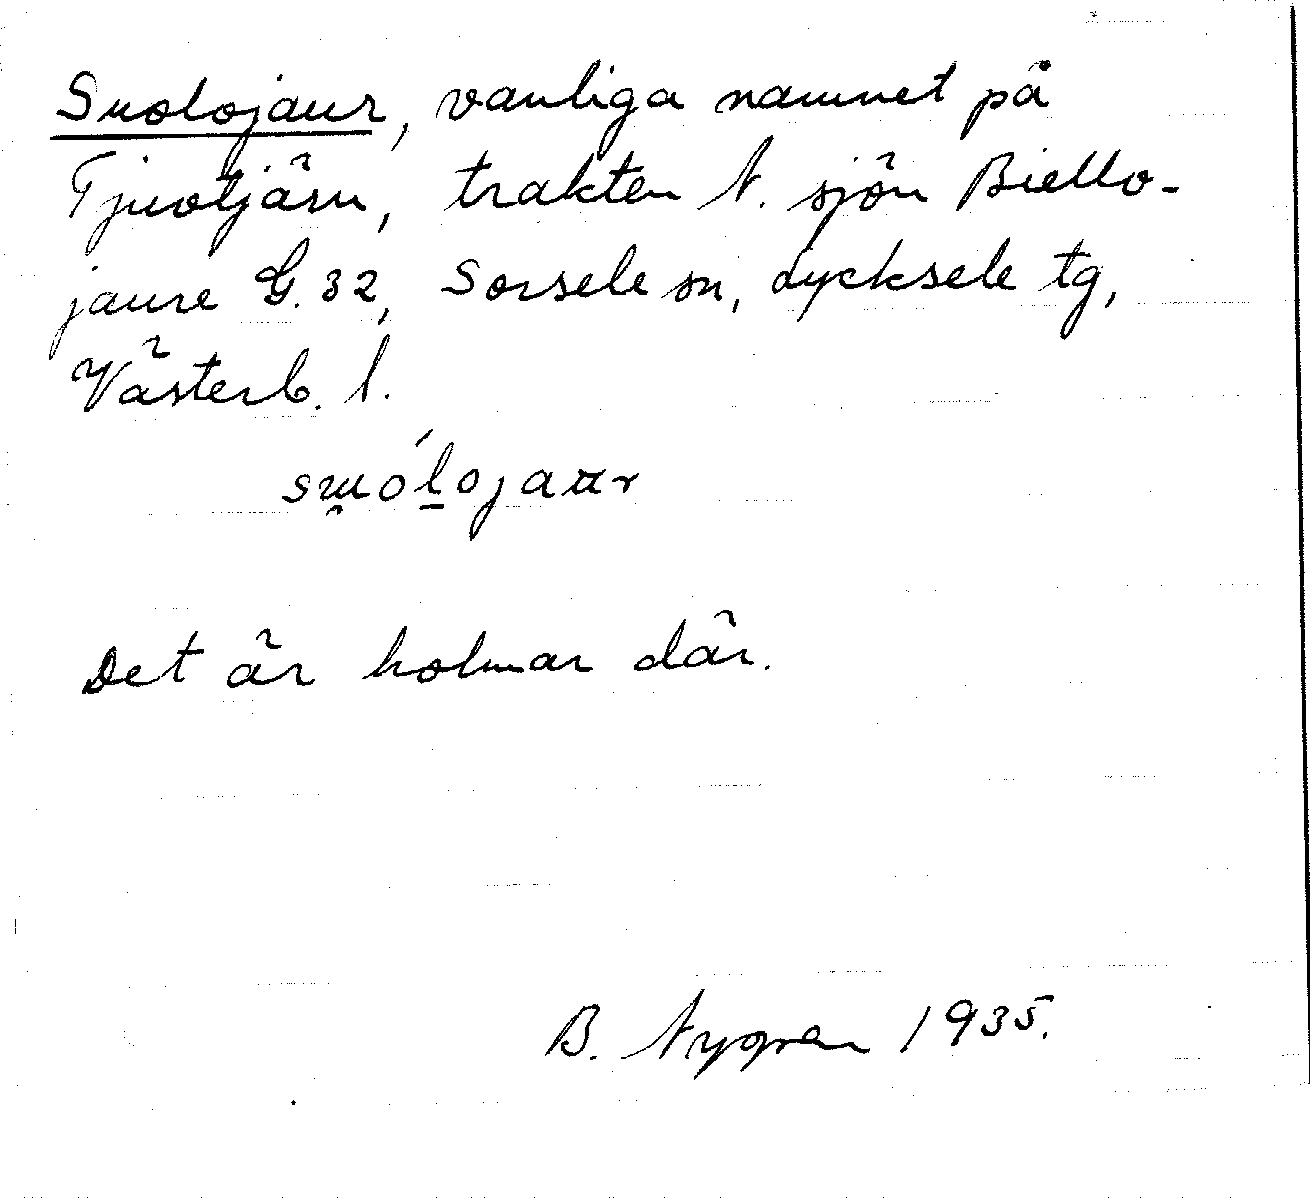 Suolojaur, vanliga namnet på
Tjuotjärn, trakten N. sjön Biello-
jaure G. 32, Sorsele sn, Lycksele tg,
Västerb. l.
suólojaur
Det är holmar där.
B. Nygren 1935.